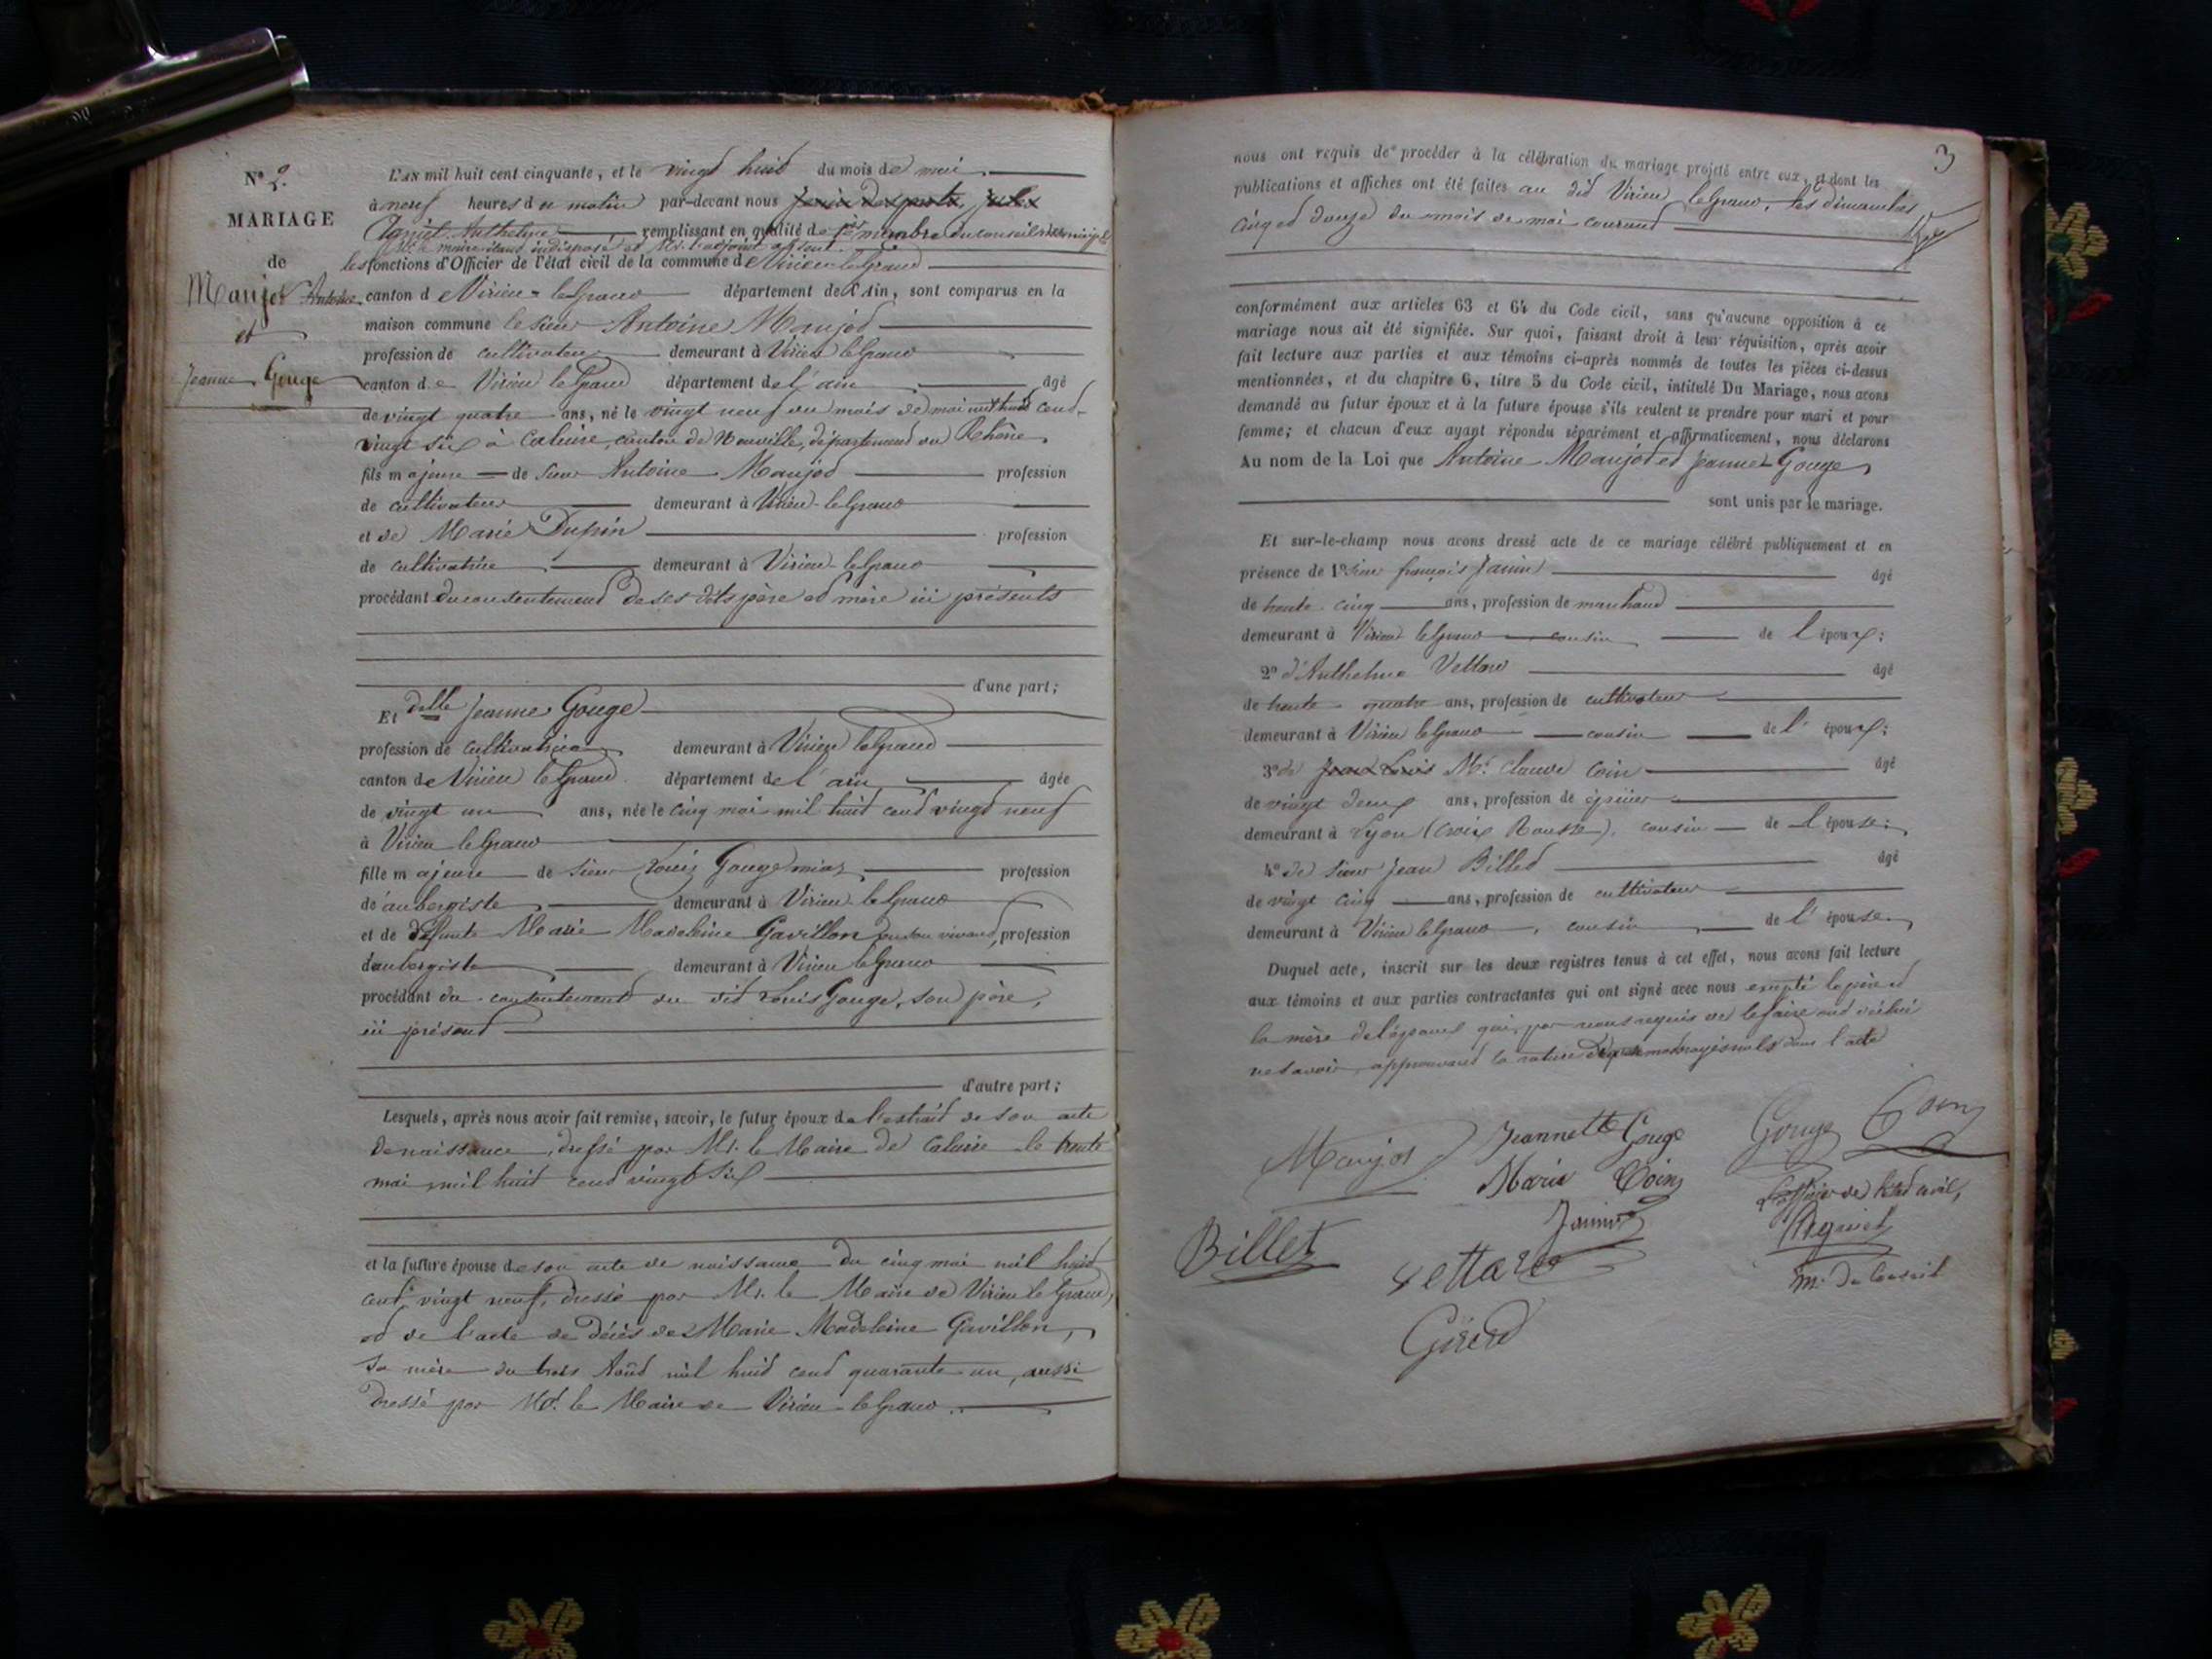 N° 2.
MARIAGE
de
Maujot Antoine
et
Jeanne Gouge
L'AN mil huit cent cinquante, et le vingt huit du mois de mai
à neuf heures du matin par-devant nous
Anthelme remplissant en qualité de 1er membre du conseil municipal
Mr le maire étant indisposé et Mr. l'adjoint absent
les fonctions d'Officier de l'état civil de la commune de Virieu-le-Grand
canton de Virieu-le-Grand département de l'Ain, sont comparus en la
maison commune le sieur Antoine Maujot
profession de cultivateur demeurant à Virieu le Grand
canton de Virieu le Grand département de l'ain âgé
de vingt quatre ans, né le vingt neuf du mois de mai mil huit cent
vingt six à Caluire, canton de Neuville, département du Rhône,
fils majeur de sieur Antoine Maujot profession
de cultivateur demeurant à Virieu-le-Grand
et de Marie Dupin profession
de cultivatrice demeurant à Virieu-le-Grand
procédant du consentement de ses dits père et mère ici présents
d'une part;
Et delle Jeanne Gouge
profession de cultivatrice demeurant à Virieu le Grand
canton de Virieu le Grand département de l'ain âgée
de vingt un ans, née le cinq mai mil huit cent vingt neuf
à Virieu le Grand
fille majeure de sieur Louis Gouge profession
d'aubergiste demeurant à Virieu le Grand
et de défunte Marie Madeleine Gavillon en son vivant, profession
d'aubergiste demeurant à Virieu le Grand
procédant du consentement du dit Louis Gouge, son père,
ici présent
d'autre part;
Lesquels, après nous avoir fait remise, savoir, le futur époux de l'extrait de son acte
de naissance, dressé par Mr. le Maire de Caluire le trente
mai mil huit cent vingt six
et la future épouse de son acte de naissance du cinq mai mil huit
cent vingt neuf, dressé par Mr. le Maire de Virieu le Grand,
et de l'acte de décès de Marie Madeleine Gavillon,
sa mère du trois Août mil huit cent quarante un, aussi
dressé par Mr. le Maire de Virieu-le Grand.
3
nous ont requis de procéder à la célébration du mariage projeté entre eux, et dont les
publications et affiches ont été faites au dit Virieu le Grand, les dimanches
cinq et douze du mois de mai courant
conformément aux articles 63 et 64 du Code civil, sans qu'aucune opposition à ce
mariage nous ait été signifiée. Sur quoi, faisant droit à leur réquisition, après avoir
fait lecture aux parties et aux témoins ci-après nommés de toutes les pièces ci-dessus
mentionnées, et du chapitre 6, titre 5 du Code civil, intitulé Du Mariage, nous avons
demandé au futur époux et à la future épouse s'ils veulent se prendre pour mari et pour
femme; et chacun d'eux ayant répondu séparément et affirmativement, nous déclarons
Au nom de la Loi que Antoine Maujot et Jeanne Gouge,
sont unis par le mariage.
Et sur-le-champ nous avons dressé acte de ce mariage célébré publiquement et en
présence de 1° sieur françois Janin âgé
de trente cinq ans, profession de marchand
demeurant à Virieu le Grand cousin de l'époux;
2° d'Anthelme Vettard âgé
de trente quatre ans, profession de cultivateur
demeurant à Virieu le Grand cousin de l'époux;
3° de Jean Louis Mr. Claude Coin âgé
de vingt deux ans, profession de épicier
demeurant à Lyon (Croix Rousse), cousin de l'épouse;
4° de sieur Jean Billet âgé
de vingt cinq ans, profession de cultivateur
demeurant à Virieu le Grand, cousin de l'épouse.
Duquel acte, inscrit sur les deux registres tenus à cet effet, nous avons fait lecture
aux témoins et aux parties contractantes qui ont signé avec nous excepté le père et
la mère de l'époux qui, par nous requis de le faire ont déclaré
ne savoir, approuvant la rature de mots rayés nuls dans l'acte
Maujot Jeannette Gouge Gouge Coin
Marie Coin
L'officier de l'état civil,
Janin
Billet
Vettard
m. du Conseil
Girerd